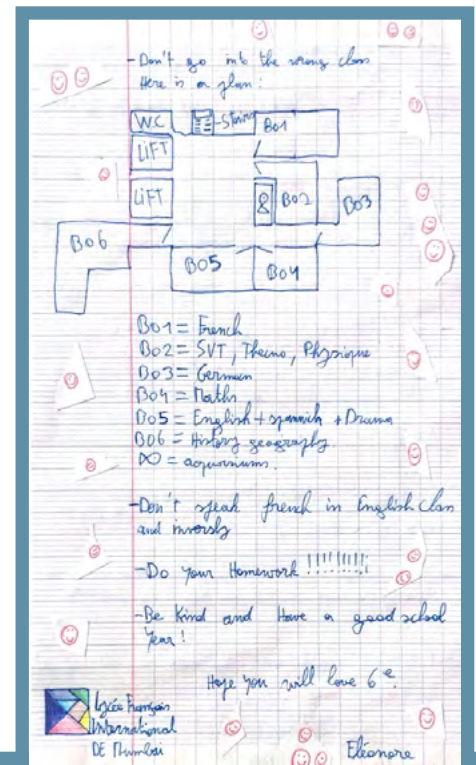 -Don't go into the wrong class
Here is a plan:
W.C
-Stairs
B01
LIFT
LIFT
B02
B03
B06
B05
B04
B01 = French
B02 = SVT, Thecno, Physique
B03 = German
B04 = Maths
B05 = English + spannish + Drama
B06 = History geography
∞ = aquariums.
-Don't speak french in English class
and inversly
-Do your Homework !!!!!!!!!
-Be Kind and Have a good school
Year!
Hope you will love 6e.
Lycée Français
International
DE Mumbai
Eléonore